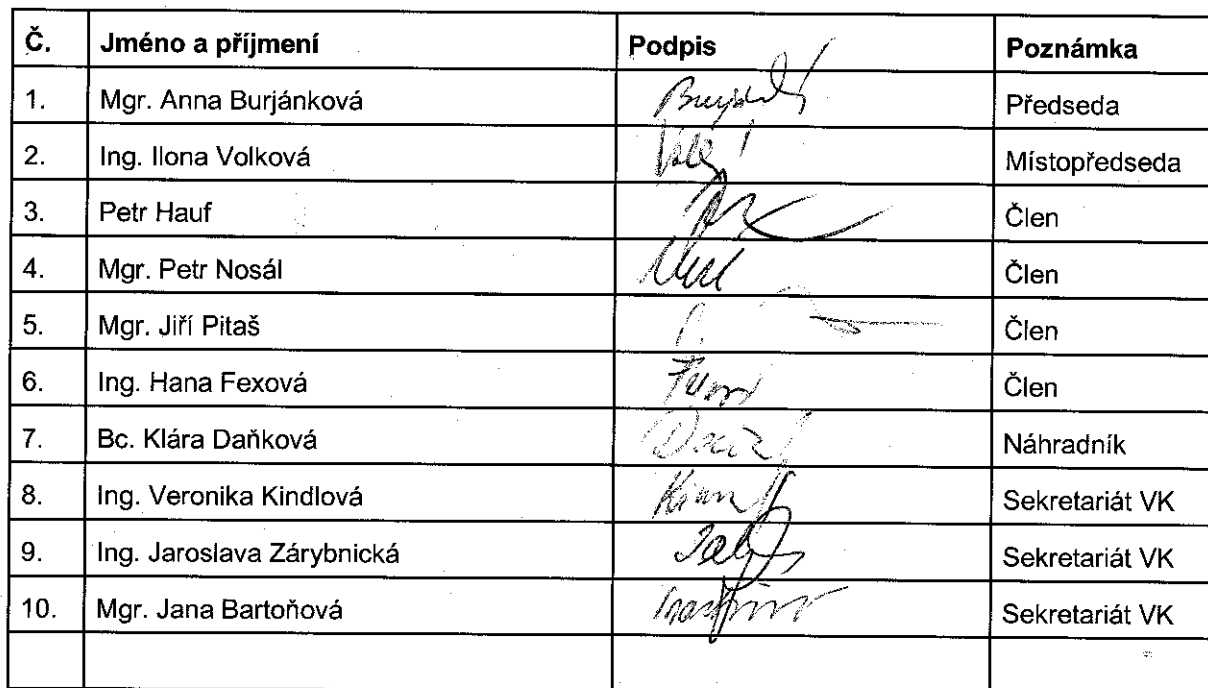 Č. Jméno a příjmení Podpis Poznámka
1. Mgr. Anna Burjánková Předseda
2. Ing. Ilona Volková Místopředseda
3. Petr Hauf Člen
4. Mgr. Petr Nosál Člen
5. Mgr. Jiří Pitaš Člen
6. Ing. Hana Fexová Člen
7. Bc. Klára Daňková Náhradník
8. Ing. Veronika Kindlová Sekretariát VK
9. Ing. Jaroslava Zárybnická Sekretariát VK
10. Mgr. Jana Bartoňová Sekretariát VK